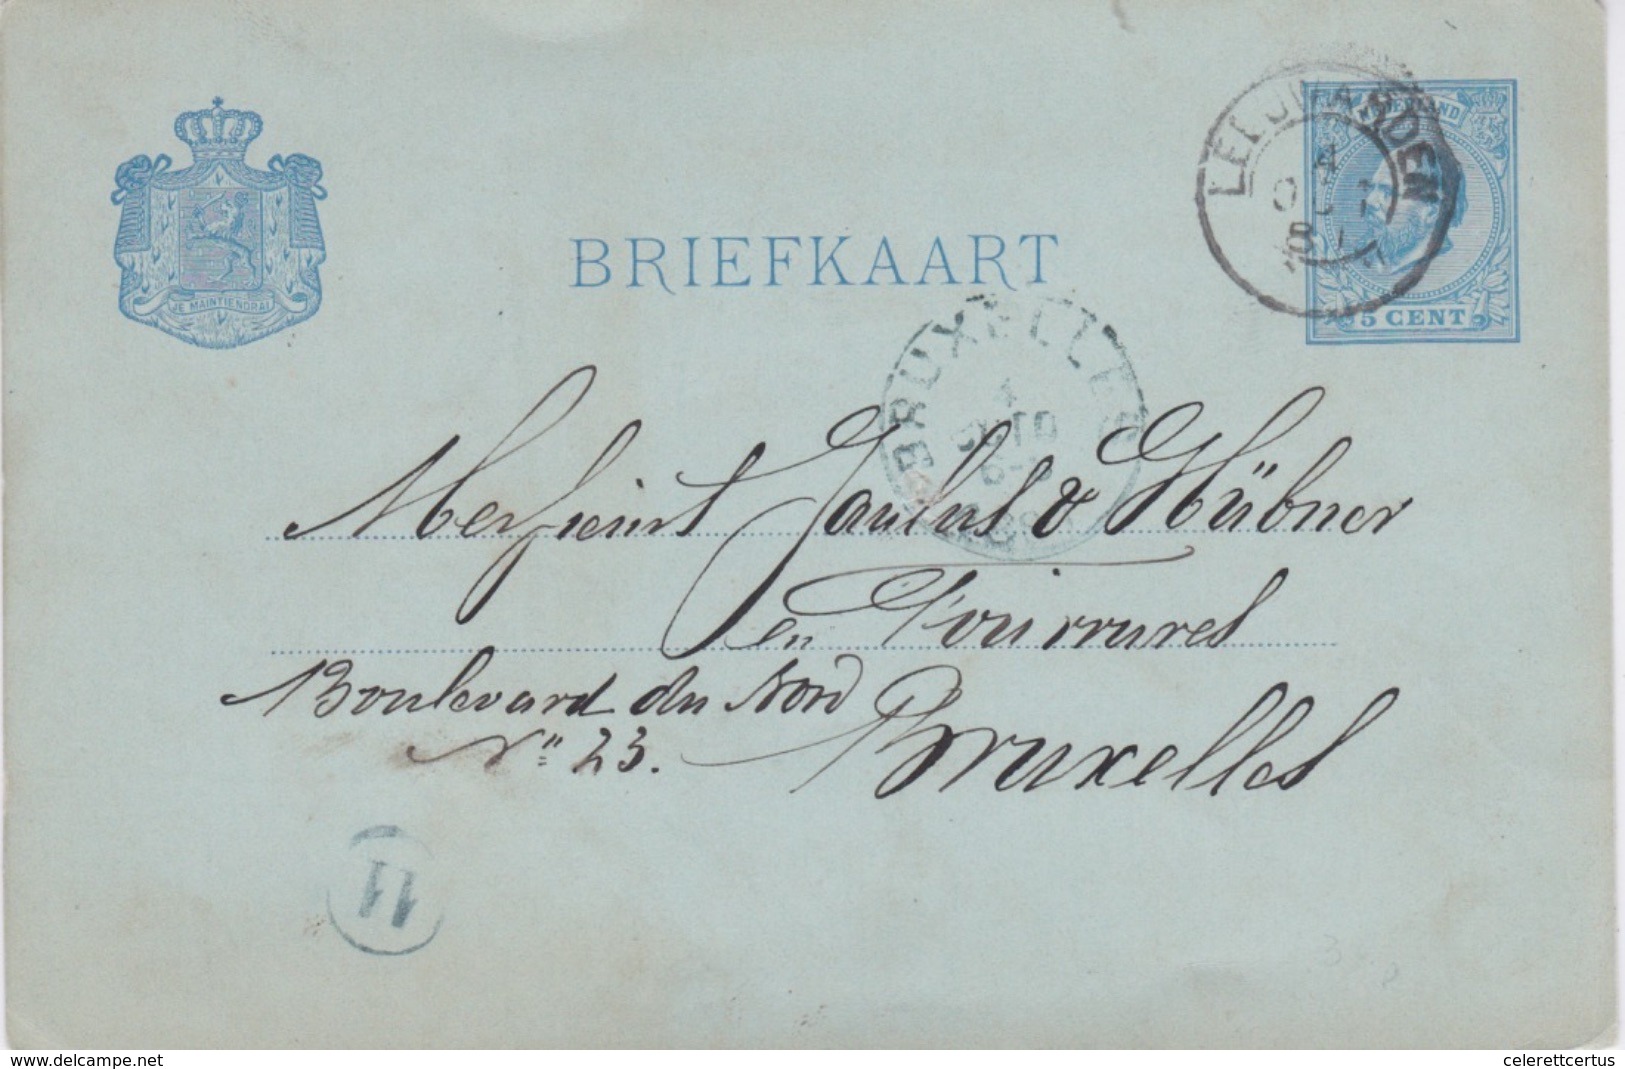 JE MAINTIENDRAI
BRIEFKAART
LEEUWARDEN
4
OCT
5 CENT
BRUXELLES
Messieurs Jaulus & Hübner
en Fourrures
Boulevard du Nord
No 23. Bruxelles
11
www.delcampe.net
celerettcertus